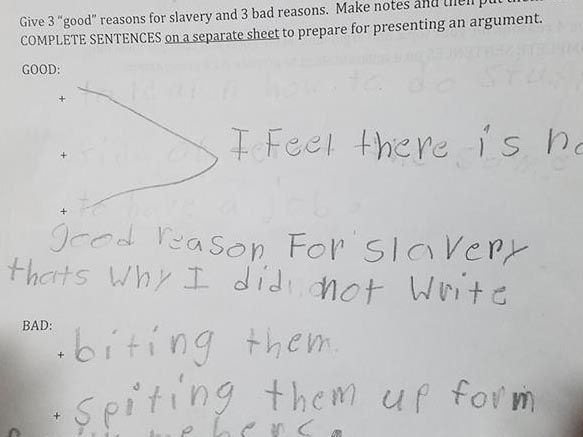 Give 3 "good" reasons for slavery and 3 bad reasons. Make notes and then put
COMPLETE SENTENCES on a separate sheet to prepare for presenting an argument.
GOOD:
+
+ I Feel there is no
+
good reason For slavery
thats Why I did not Write
BAD:
+ biting them.
+ Spiting them up form